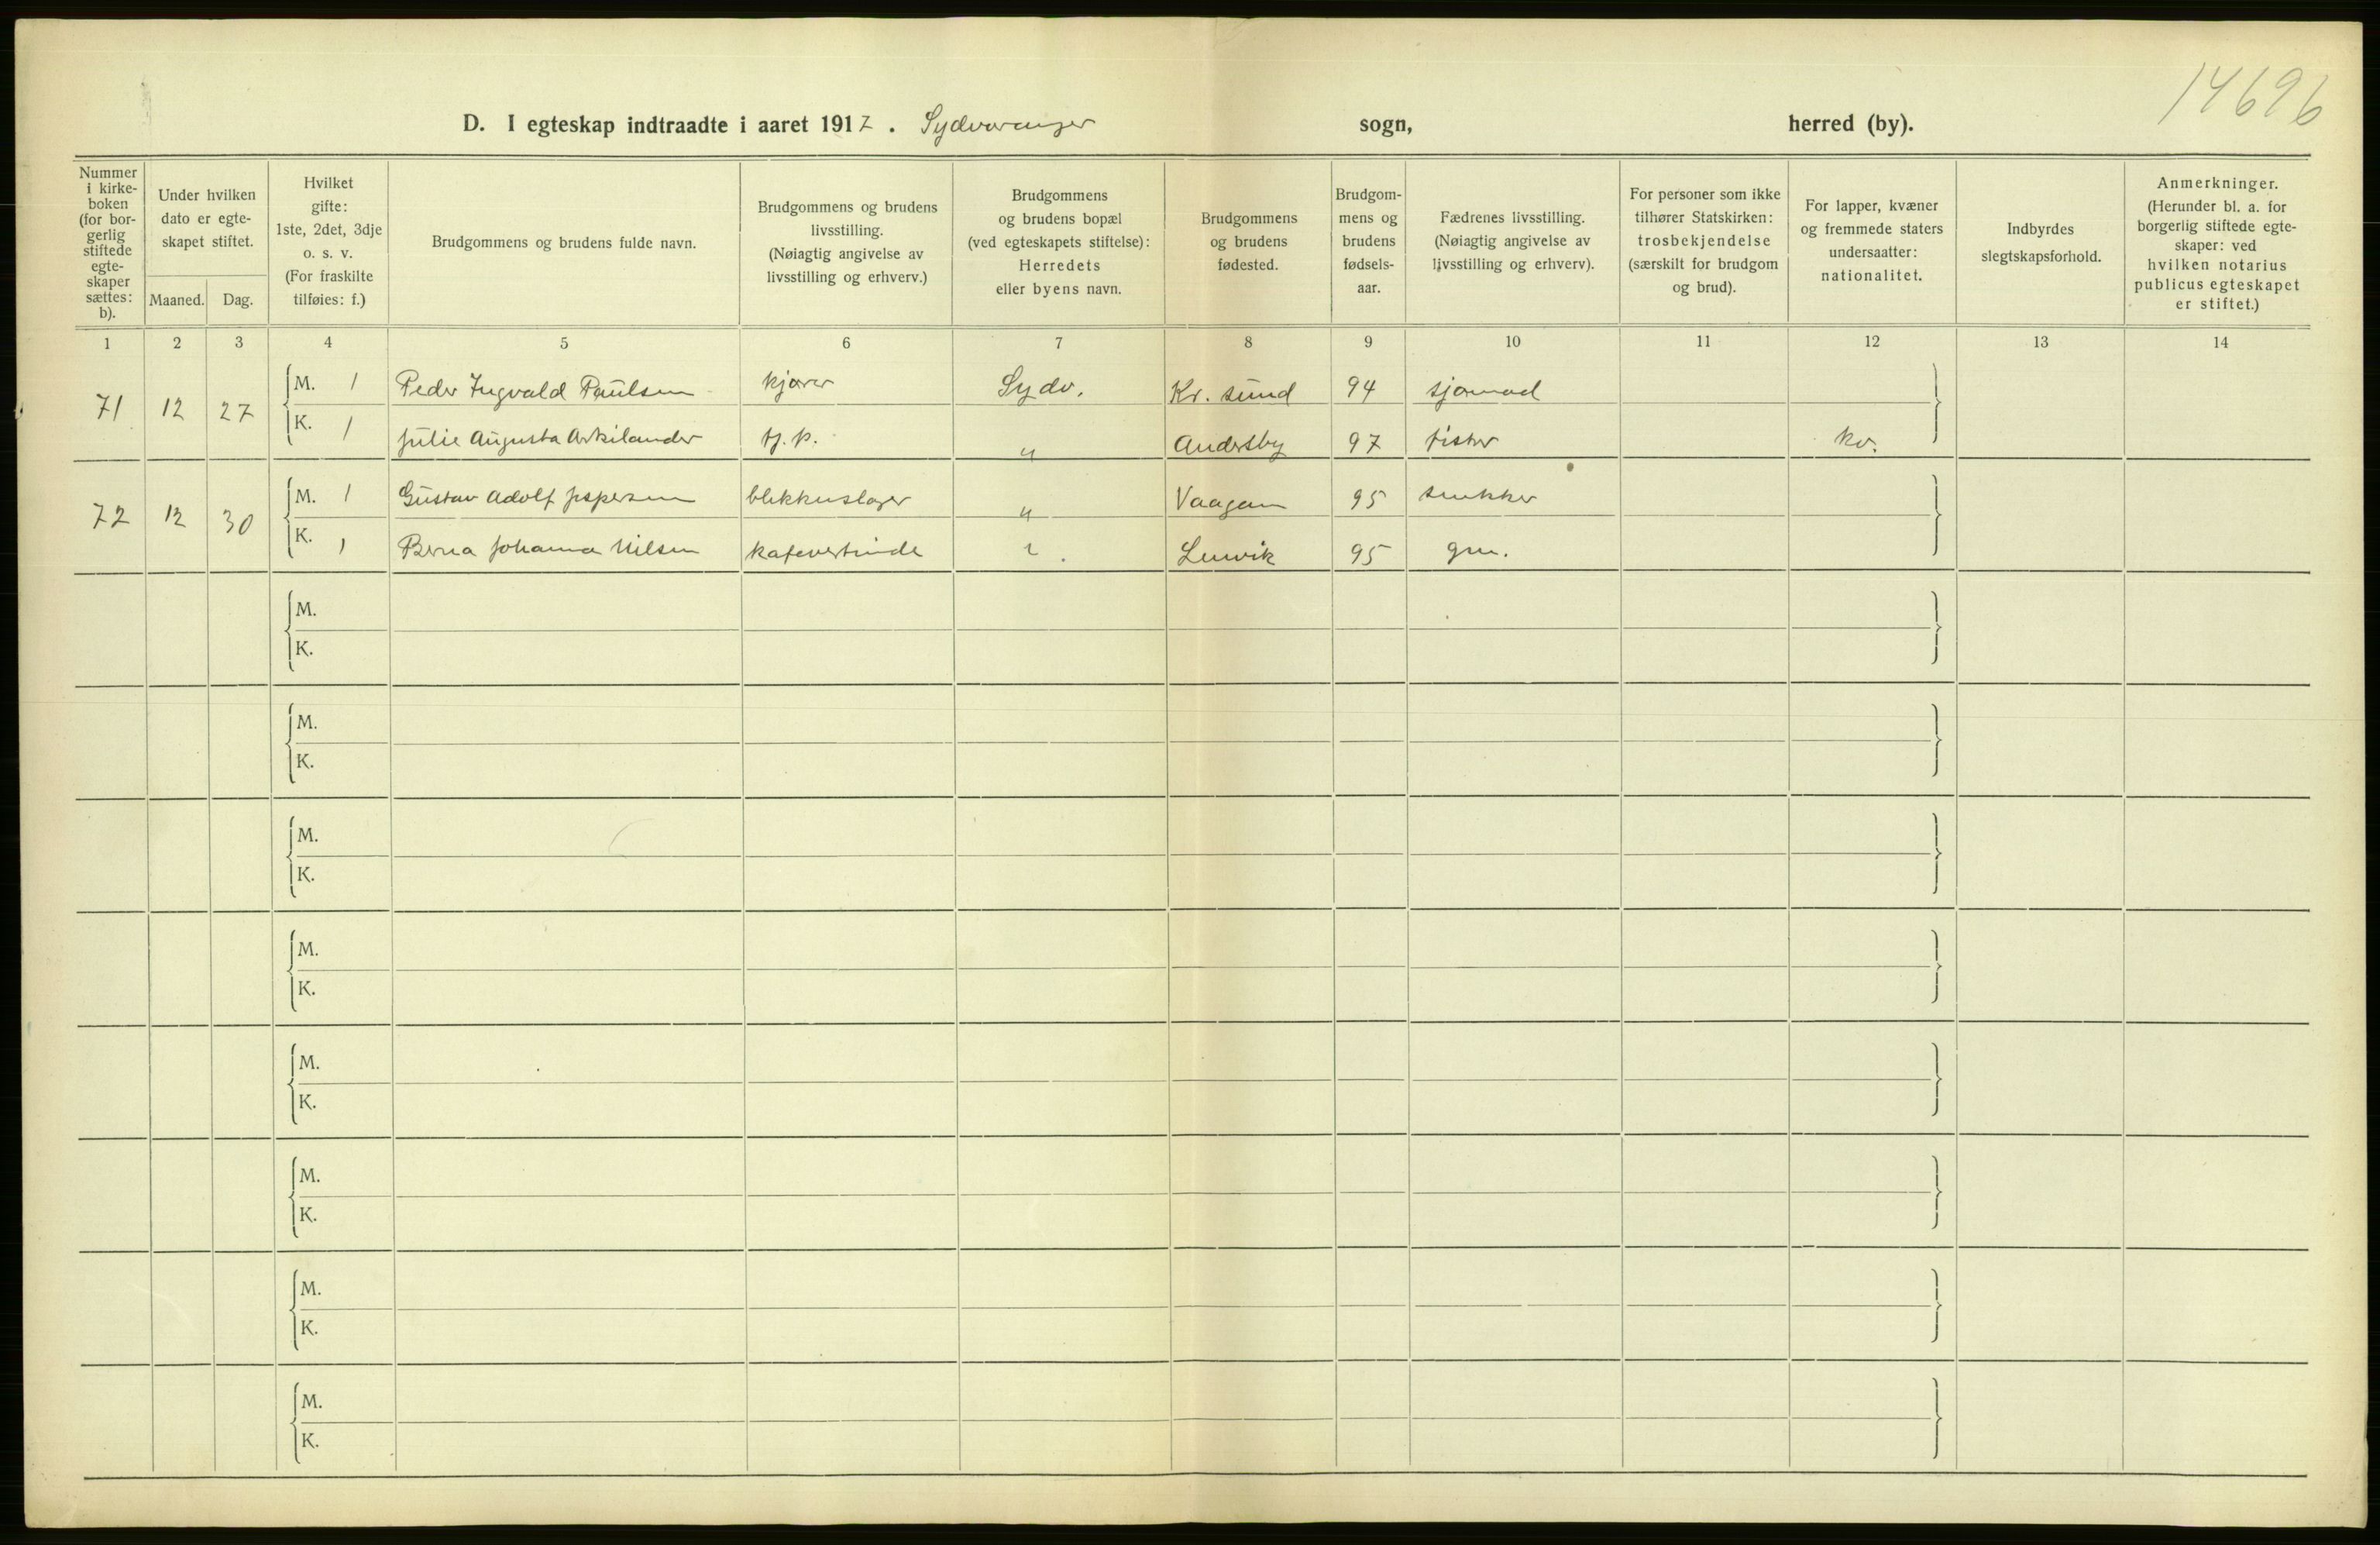 14696
D. I egteskap indtraadte i aaret 1917. Sydvaranger sogn, herred (by).
Nummer i kirke-boken (for bor-gerlig stiftede egte-skaper sættes: b).
Under hvilken dato er egte-skapet stiftet.
Maaned. Dag.
Hvilket gifte: 1ste, 2det, 3dje o. s. v. (For fraskilte tilføies: f.)
Brudgommens og brudens fulde navn.
Brudgommens og brudens livsstilling. (Nøiagtig angivelse av livsstilling og erhverv.)
Brudgommens og brudens bopæl (ved egteskapets stiftelse): Herredets eller byens navn.
Brudgommens og brudens fødested.
Brudgom-mens og brudens fødsels-aar.
Fædrenes livsstilling. (Nøiagtig angivelse av livsstilling og erhverv).
For personer som ikke tilhører Statskirken: trosbekjendelse (særskilt for brudgom og brud).
For lapper, kvæner og fremmede staters undersaatter: nationalitet.
Indbyrdes slegtskapsforhold.
Anmerkninger. (Herunder bl. a. for borgerlig stiftede egte-skaper: ved hvilken notarius publicus egteskapet er stiftet.)
1 2 3 4 5 6 7 8 9 10 11 12 13 14
71 12 27 M. 1 Peder Ingvald Paulsen kjører Sydv. Kr. sund 94 sjømand
K. 1 Julie Augusta Arkilander tj. p. " Andersby 97 fisker kv.
72 12 30 M. 1 Gustav Adolf Jespersen blikkenslager " Vaagan 95 snekker
K. 1 Berna Johanna Nilsen kafevertinde " Lenvik 95 gm.
M.
K.
M.
K.
M.
K.
M.
K.
M.
K.
M.
K.
M.
K.
M.
K.